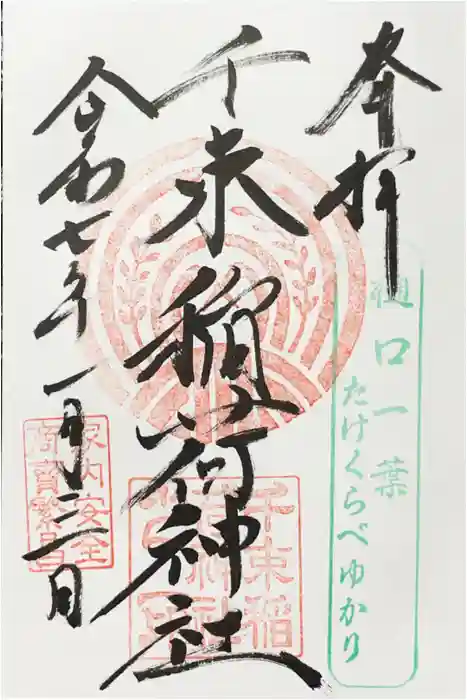 奉拝
樋口一葉
たけくらべゆかり
千束稲荷神社
千束稲
令和七年一月三日
家内安全
商賣繁昌